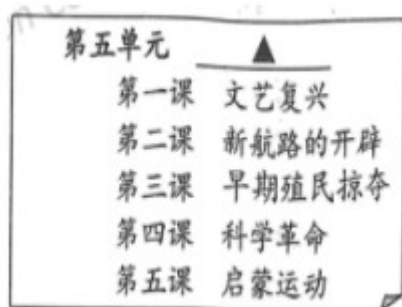 第五单元 ▲
第一课 文艺复兴
第二课 新航路的开辟
第三课 早期殖民掠夺
第四课 科学革命
第五课 启蒙运动